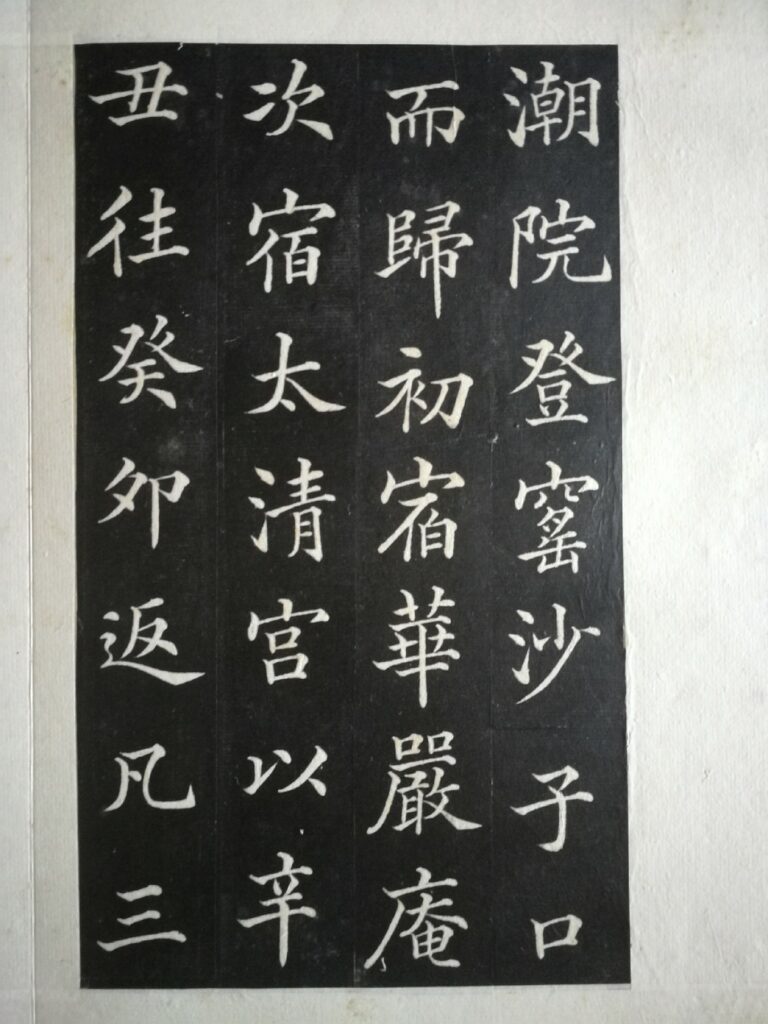 潮院登窰沙子口
而歸初宿華嚴庵
次宿太清宫以辛
丑往癸卯返凡三